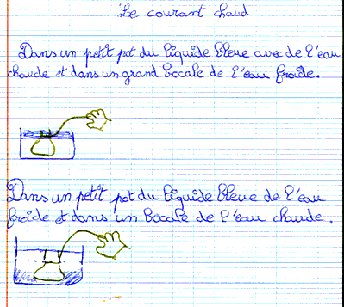 Le courant chaud
Dans un petit pot du liquide bleue avec de l'eau
chaude et dans un grand bocale de l'eau froide.
Dans un petit pot du liquide bleue de l'eau
froide et dans un bocale de l'eau chaude.